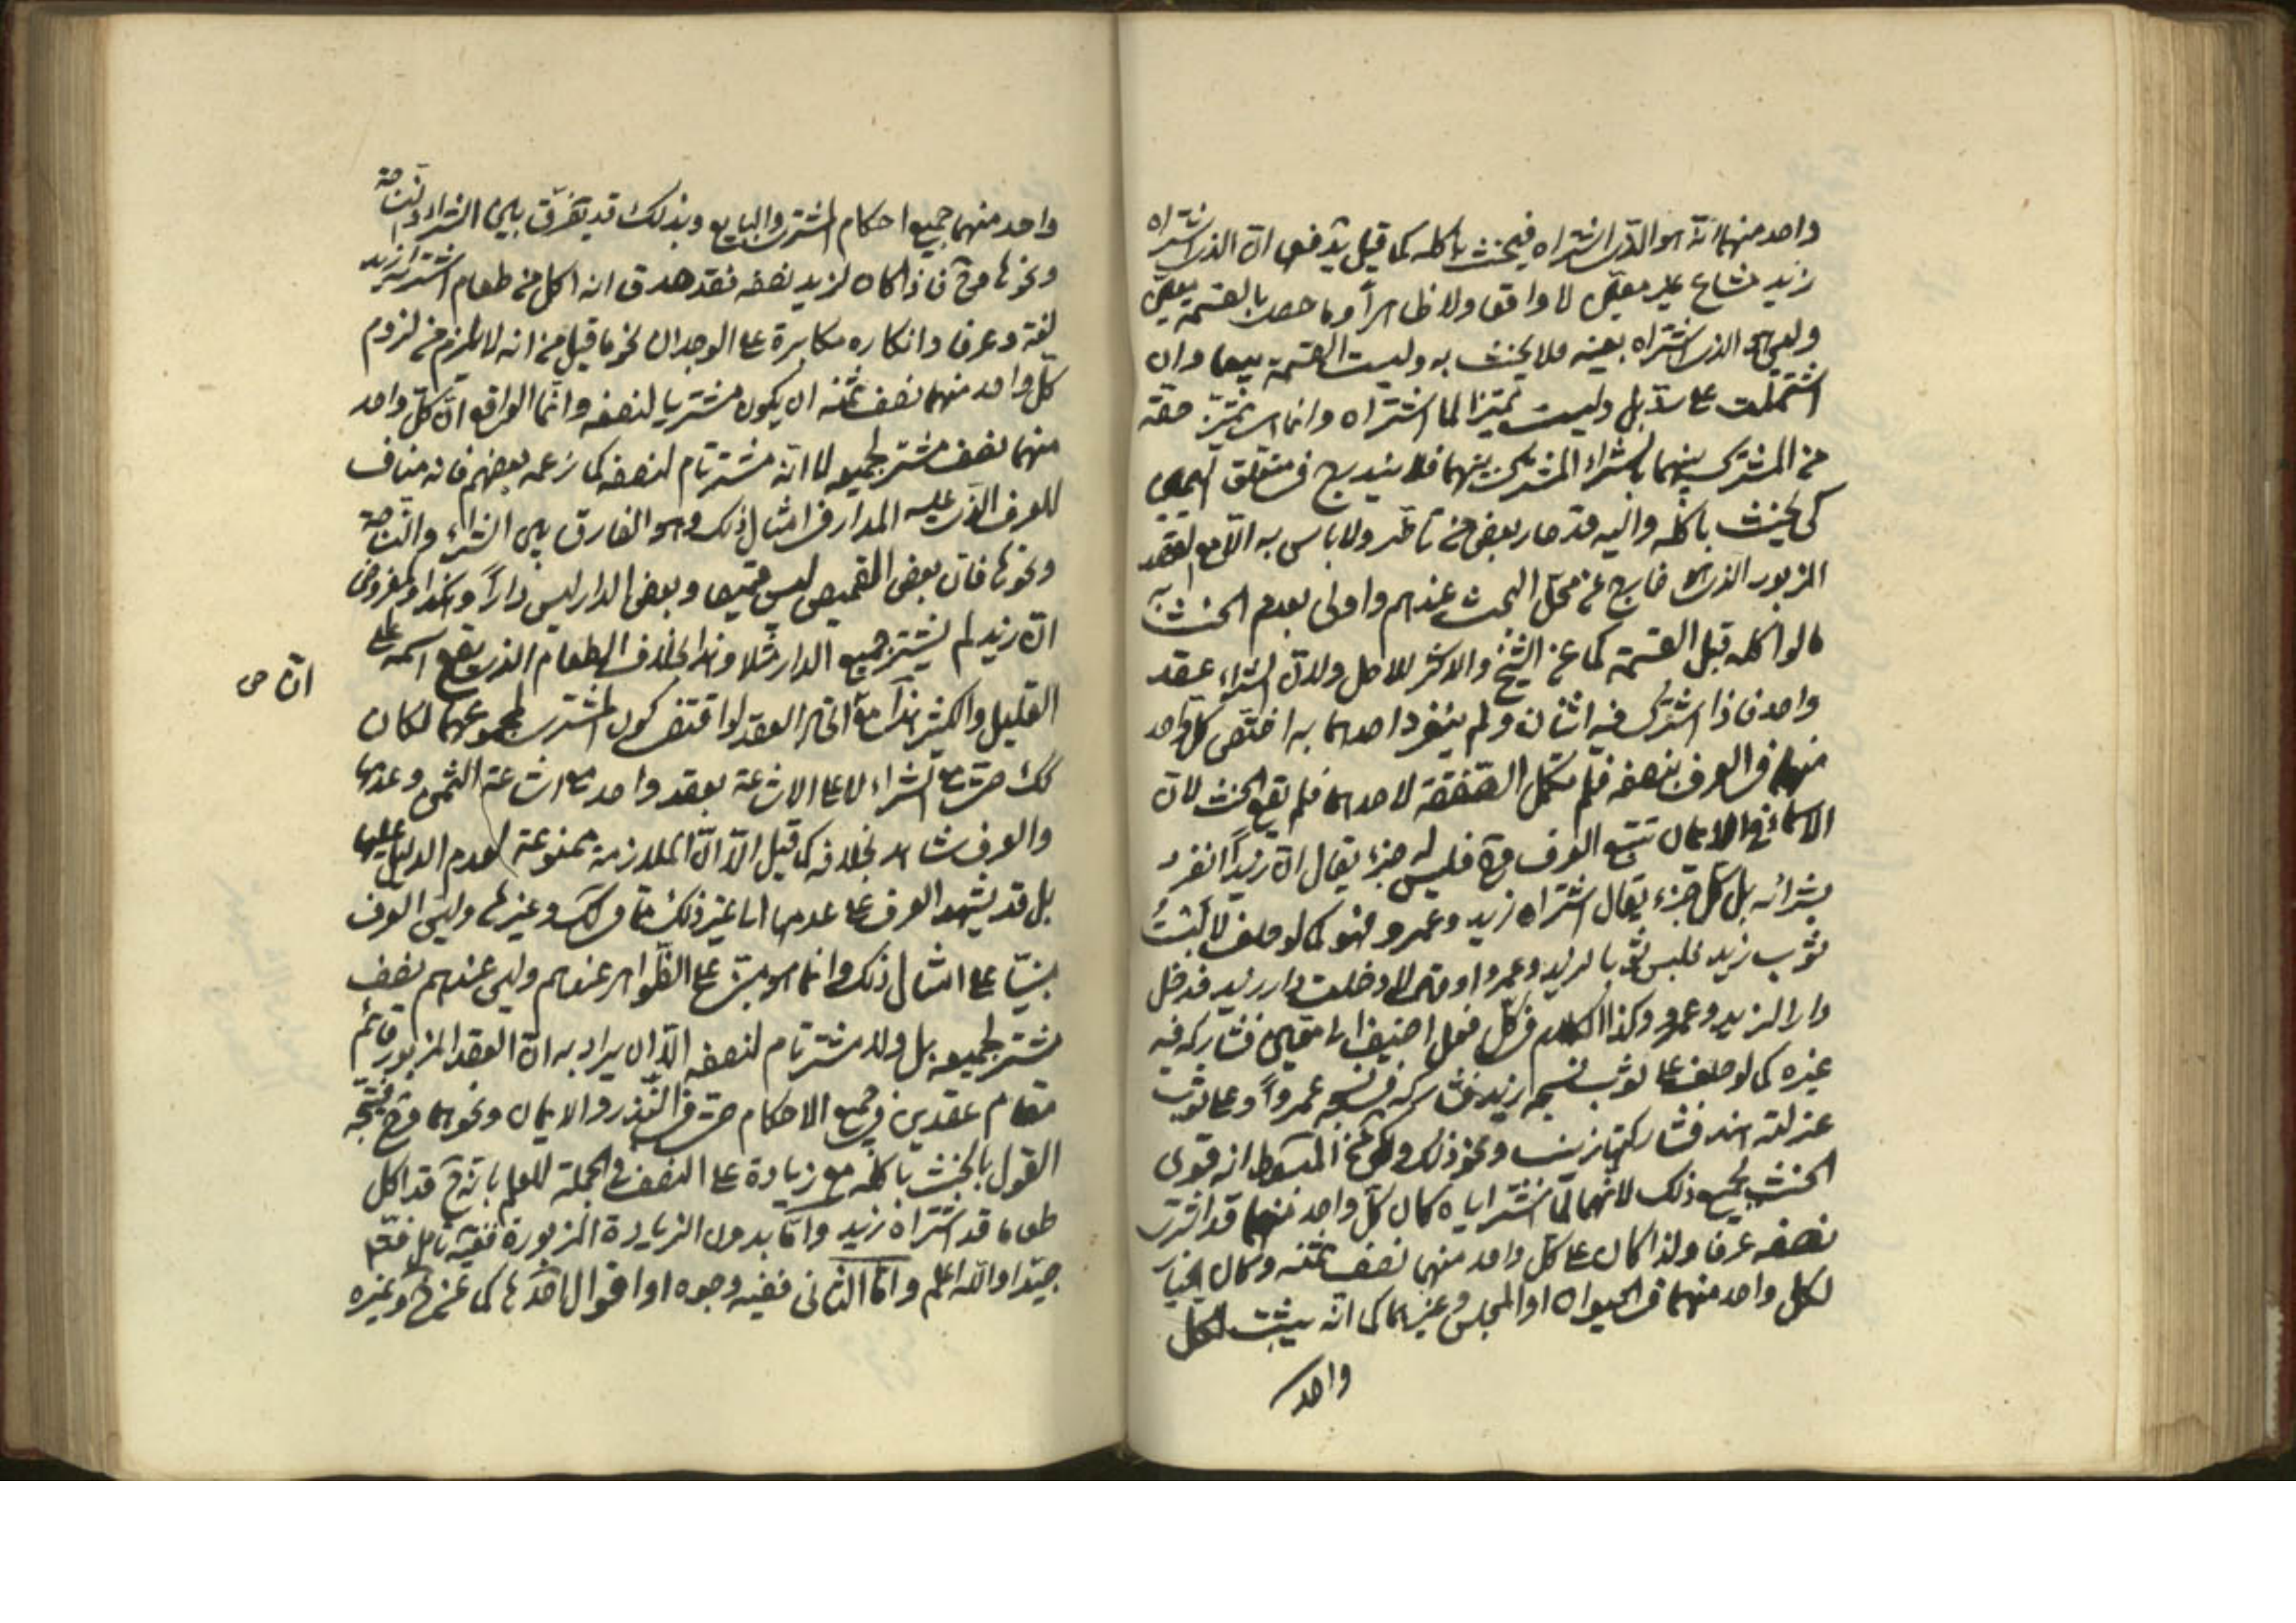 واحد منهما انه هو الذى اشتراه فيحنث باكله كما قيل يدفعه ان الذى اشتراه
زيد مشاع غير معين لا واقعا ولا ظاهراً وما حصل بالقسمة معين
وليس هو الذى اشتراه بعينه فلا يحنث به وليست القسمة بيعا وان
اشتملت على بل وليست تميزا لما اشتراه وانما هى تميز حقه
من المشترك بينهما بالشراء المشترك بينهما فلا يندرج فى متعلق اليمين
كى يحنث باكله واليه قد صار بعض من تاخر ولا باس به الا مع القصد
المزبور الذى هو خارج عن محل البحث عندهم واولى بعدم الحنث
ما لو اكله قبل القسمة كما عن الشيخ والاكثر للاصل ولان الشراء عقد
واحد فاذا اشترك فيه اثنان ولم ينفرد احدهما به اختص كل واحد
منهما فى العرف بنصفه فلم تكمل الصفقة لاحدهما فلم يقع الحنث لان
الاسماء فى الايمان تتبع العرف فليس له جزء يقال ان زيداً انفرد
بشرائه بل كل جزء يقال اشتراه زيد وعمرو فهو كما لو حلف لا لبست
ثوب زيد فلبس ثوبا لزيد وعمرو او قال لا دخلت دار زيد فدخل
دارا لزيد وعمرو وكذا الكلام فى كل فعل اضيف الى معين فشاركه فيه
غيره كما لو حلف على ثوب نسجه زيد فشاركه فى نسجه عمرواً وعلى ثوب
غزلته هند فشاركتها زينب ونحو ذلك وعن المبسوط انه قوى
الحنث بجميع ذلك لانهما لما اشتراياه كان كل واحد منهما قد اشترى
نصفه عرفا ولذا كان على كل واحد منهما نصف ثمنه وكان الخيار
لكل واحد منهما فى الحيوان او المجلس وغيرهما كما انه يثبت لكل
واحد
واحد منهما جميع احكام المشترى والبايع وبذلك قد يفرق بين الشراء والنساجة
ونحوها فاذا كان لزيد نصفه فقد صدق انه اكل من طعام اشتراه زيد
لغة وعرفا وانكاره مكابرة على الوجدان نحو ما قيل من انه لا يلزم من لزوم
كل واحد منهما نصف ثمنه ان يكون مشتريا لنصفه وانما الواقع ان كل واحد
منهما نصف مشتر لجميعه لا انه مشتر تام لنصفه كما زعمه بعضهم فانه مناف
للعرف الذى عليه المدار فى امثال ذلك وهو الفارق بين الشراء والنساجة
ونحوها فان بعض القميص ليس قميصا وبعض الدار ليس داراً وهكذا والمفروض
ان زيد لم يشتر جميع الدار مثلا وهذا بخلاف الطعام الذى يقع اسمه على
القليل والكثير هذا مع اتحاد العقد لو اقتضى كون المشترى لمجموعهما لكان
كك حتى مع الشراء لا على الاشاعة بعقد واحد مع اشاعة الثمن وعدمها
والعرف شاهد بخلافه كما قيل الا ان الملازمة ممنوعة لعدم الدليل عليها
بل قد يشهد العرف على عدمها الى غير ذلك مما فى لك وغيرها وليس العرف
مبنيا على امثال ذلك وانما هو مبنى على الظواهر عندهم وليس عندهم نصف
مشتر لجميعه بل ولا مشتر تام لنصفه الا ان يراد به ان العقد المزبور قائم
مقام عقدين فى جميع الاحكام حتى فى النذر والايمان ونحوهما فيتجه
القول بالحنث باكله مع زيادة على النصف فى الجملة للعلم بانه ح قد اكل
طعاما قد اشتراه زيد واما بدون الزيادة المزبورة ففيه تامل فتأمل
جيدا والله اعلم واما الثانى ففيه وجوه او اقوال احدها كما عن وغيره
ان ص